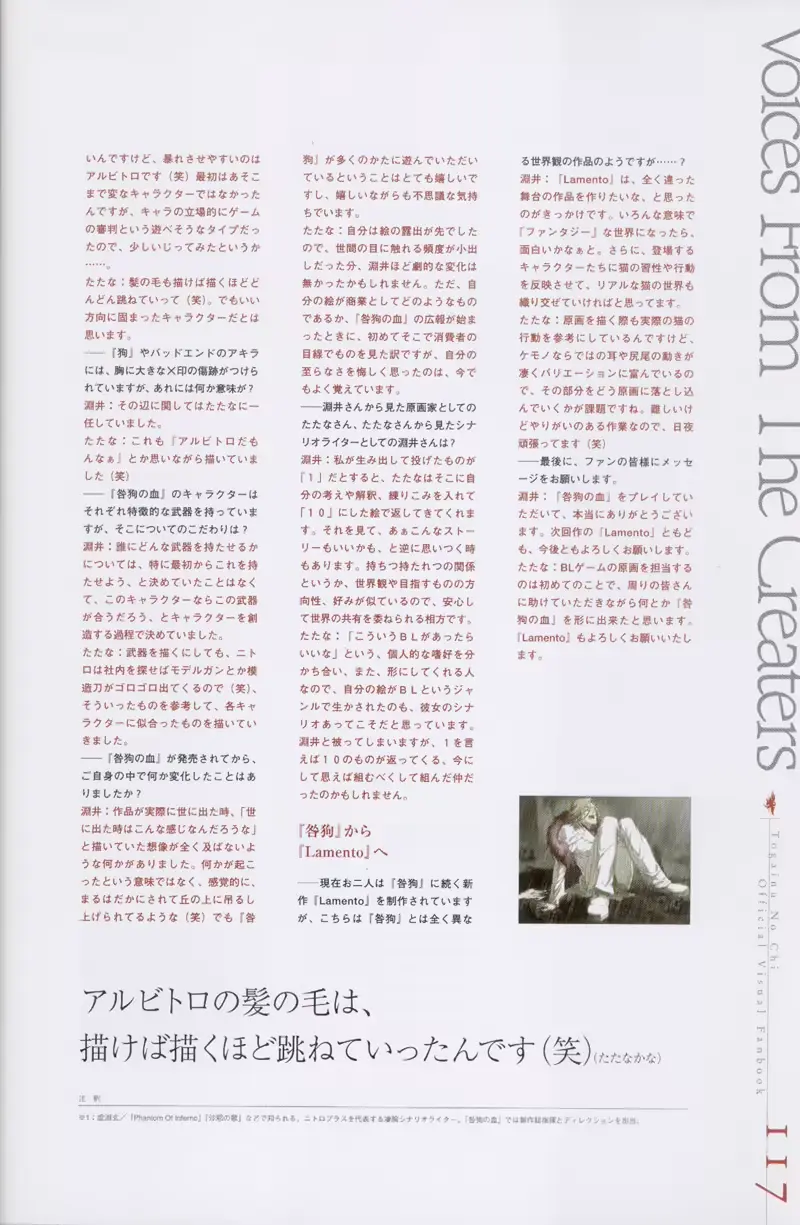 いんですけど、暴れさせやすいのは
アルビトロです（笑）最初はあそこ
まで変なキャラクターではなかった
んですが、キャラの立場的にゲーム
の審判という遊べそうなタイプだっ
たので、少しいじってみたというか
……。
たたな：髪の毛も描けば描くほどど
んどん跳ねていって（笑）。でもいい
方向に固まったキャラクターだとは
思います。
――『狗』やバッドエンドのアキラ
には、胸に大きな×印の傷跡がつけら
れていますが、あれには何か意味が？
淵井：その辺に関してはたたなに一
任していました。
たたな：これも『アルビトロだも
んなぁ』とか思いながら描いていま
した（笑）
――『咎狗の血』のキャラクターは
それぞれ特徴的な武器を持っていま
すが、そこについてのこだわりは？
淵井：誰にどんな武器を持たせるか
については、特に最初からこれを持
たせよう、と決めていたことはなく
て、このキャラクターならこの武器
が合うだろう、とキャラクターを創
造する過程で決めていました。
たたな：武器を描くにしても、ニト
ロは社内を探せばモデルガンとか模
造刀がゴロゴロ出てくるので（笑）、
そういったものを参考して、各キャ
ラクターに似合ったものを描いてい
きました。
――『咎狗の血』が発売されてから、
ご自身の中で何か変化したことはあ
りましたか？
淵井：作品が実際に世に出た時、「世
に出た時はこんな感じなんだろうな」
と描いていた想像が全く及ばないよ
うな何かがありました。何かが起こ
ったという意味ではなく、感覚的に、
まるはだかにされて丘の上に吊るし
上げられてるような（笑）でも『咎
狗』が多くのかたに遊んでいただい
ているということはとても嬉しいで
すし、嬉しいながらも不思議な気持
ちでいます。
たたな：自分は絵の露出が先でした
ので、世間の目に触れる頻度が小出
しだった分、淵井ほど劇的な変化は
無かったかもしれません。ただ、自
分の絵が商業としてどのようなもの
であるか、『咎狗の血』の広報が始ま
ったときに、初めてそこで消費者の
目線でものを見た訳ですが、自分の
至らなさを悔しく思ったのは、今で
もよく覚えています。
――淵井さんから見た原画家としての
たたなさん、たたなさんから見たシナ
リオライターとしての淵井さんは？
淵井：私が生み出して投げたものが
「１」だとすると、たたなはそこに自
分の考えや解釈、練りこみを入れて
「１０」にした絵で返してきてくれま
す。それを見て、あぁこんなストー
リーもいいかも、と逆に思いつく時
もあります。持ちつ持たれつの関係
というか、世界観や目指すものの方
向性、好みが似ているので、安心し
て世界の共有を委ねられる相方です。
たたな：「こういうＢＬがあったら
いいな」という、個人的な嗜好を分
かち合い、また、形にしてくれる人
なので、自分の絵がＢＬというジャ
ンルで生かされたのも、彼女のシナ
リオあってこそだと思っています。
淵井と被ってしまいますが、１を言
えば１０のものが返ってくる、今に
して思えば組むべくして組んだ仲だ
ったのかもしれません。
『咎狗』から
『Lamento』へ
――現在お二人は『咎狗』に続く新
作『Lamento』を制作されています
が、こちらは『咎狗』とは全く異な
る世界観の作品のようですが……？
淵井：『Lamento』は、全く違った
舞台の作品を作りたいな、と思った
のがきっかけです。いろんな意味で
『ファンタジー』な世界になったら、
面白いかなぁと。さらに、登場する
キャラクターたちに猫の習性や行動
を反映させて、リアルな猫の世界も
織り交ぜていければと思ってます。
たたな：原画を描く際も実際の猫の
行動を参考にしているんですけど、
ケモノならではの耳や尻尾の動きが
凄くバリエーションに富んでいるの
で、その部分をどう原画に落とし込
んでいくかが課題ですね。難しいけ
どやりがいのある作業なので、日夜
頑張ってます（笑）
――最後に、ファンの皆様にメッセ
ージをお願いします。
淵井：『咎狗の血』をプレイしてい
ただいて、本当にありがとうござい
ます。次回作の『Lamento』ともど
も、今後ともよろしくお願いします。
たたな：BLゲームの原画を担当する
のは初めてのことで、周りの皆さん
に助けていただきながら何とか『咎
狗の血』を形に出来たと思います。
『Lamento』もよろしくお願いいたし
ます。
アルビトロの髪の毛は、
描けば描くほど跳ねていったんです（笑）（たたなかな）
注 釈
※1：虚淵玄／『Phantom Of Inferno』『沙耶の唄』などで知られる、ニトロプラスを代表する凄腕シナリオライター。『咎狗の血』では制作総指揮とディレクションを担当。
Voices From The Creaters
Togainu No Chi
Official Visual Fanbook
117